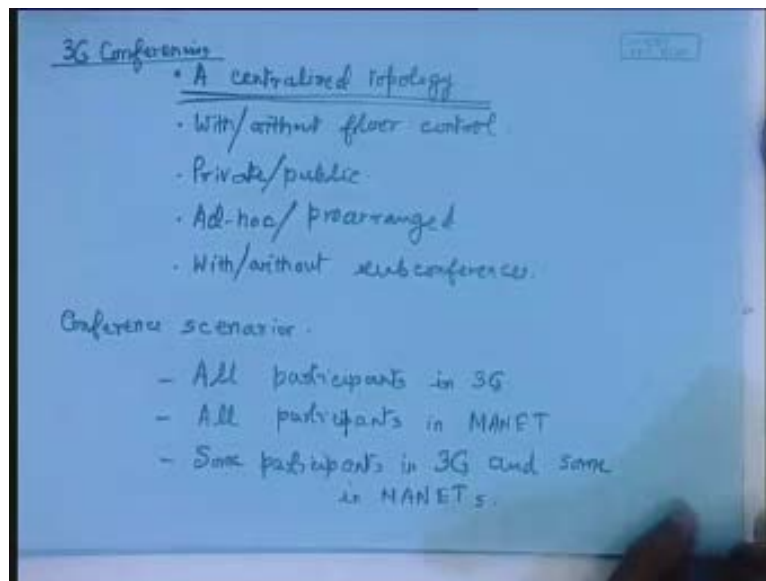 3G Conferencing
• A centralized topology
• With/without floor control
• Private/public
• Ad-hoc/prearranged
• With/without subconferences.
Conference scenario.
- All participants in 3G
- All participants in MANET
- Some participants in 3G and some
in MANETs.